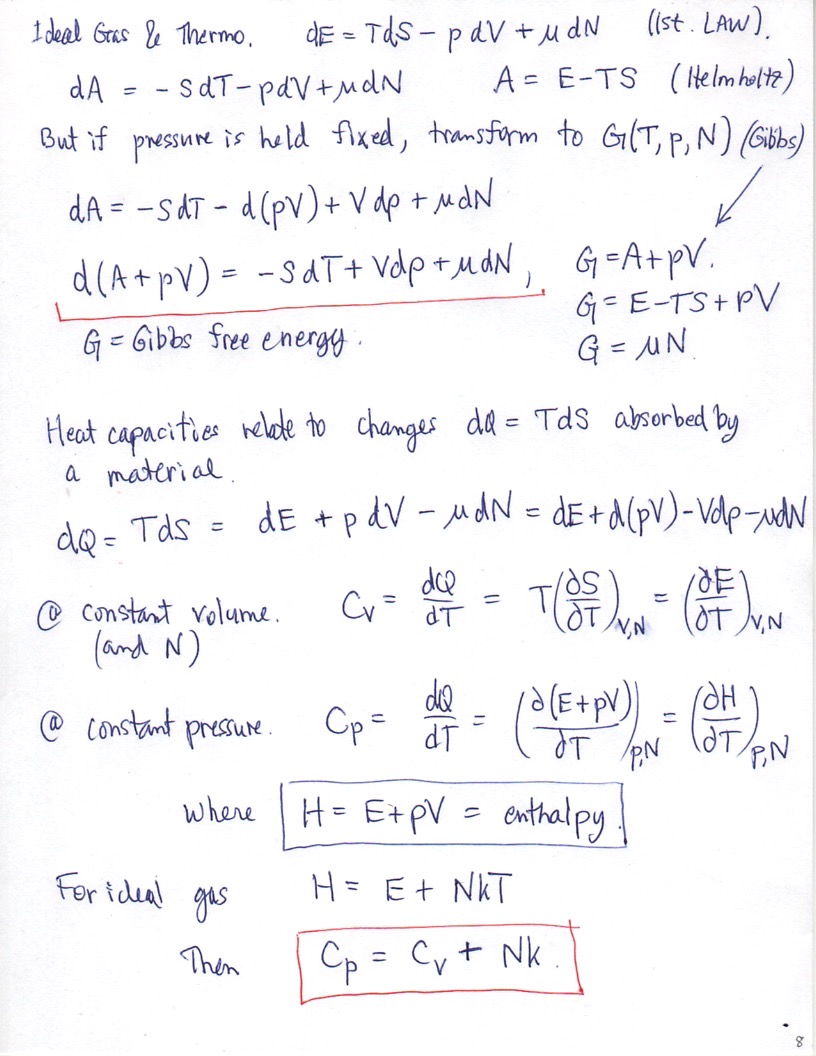 Ideal Gas & Thermo. dE = TdS - pdV + μdN (1st. LAW).
dA = -SdT - pdV + μdN A = E-TS (Helmholtz)
But if pressure is held fixed, transform to G(T, p, N) (Gibbs)
dA = -SdT - d(pV) + Vdp + μdN
d(A+pV) = -SdT + Vdp + μdN, G = A+pV.
G = E-TS+pV
G = Gibbs free energy. G = μN.
Heat capacities relate to changes dQ = TdS absorbed by
a material.
dQ = TdS = dE + pdV - μdN = dE + d(pV) - Vdp - μdN
@ constant volume. (and N) Cv = dQ/dT = T(∂S/∂T)V,N = (∂E/∂T)V,N
@ constant pressure. Cp = dQ/dT = (∂(E+pV)/∂T)P,N = (∂H/∂T)P,N
where H = E+pV = enthalpy.
For ideal gas H = E + NkT
Then Cp = Cv + Nk.
8